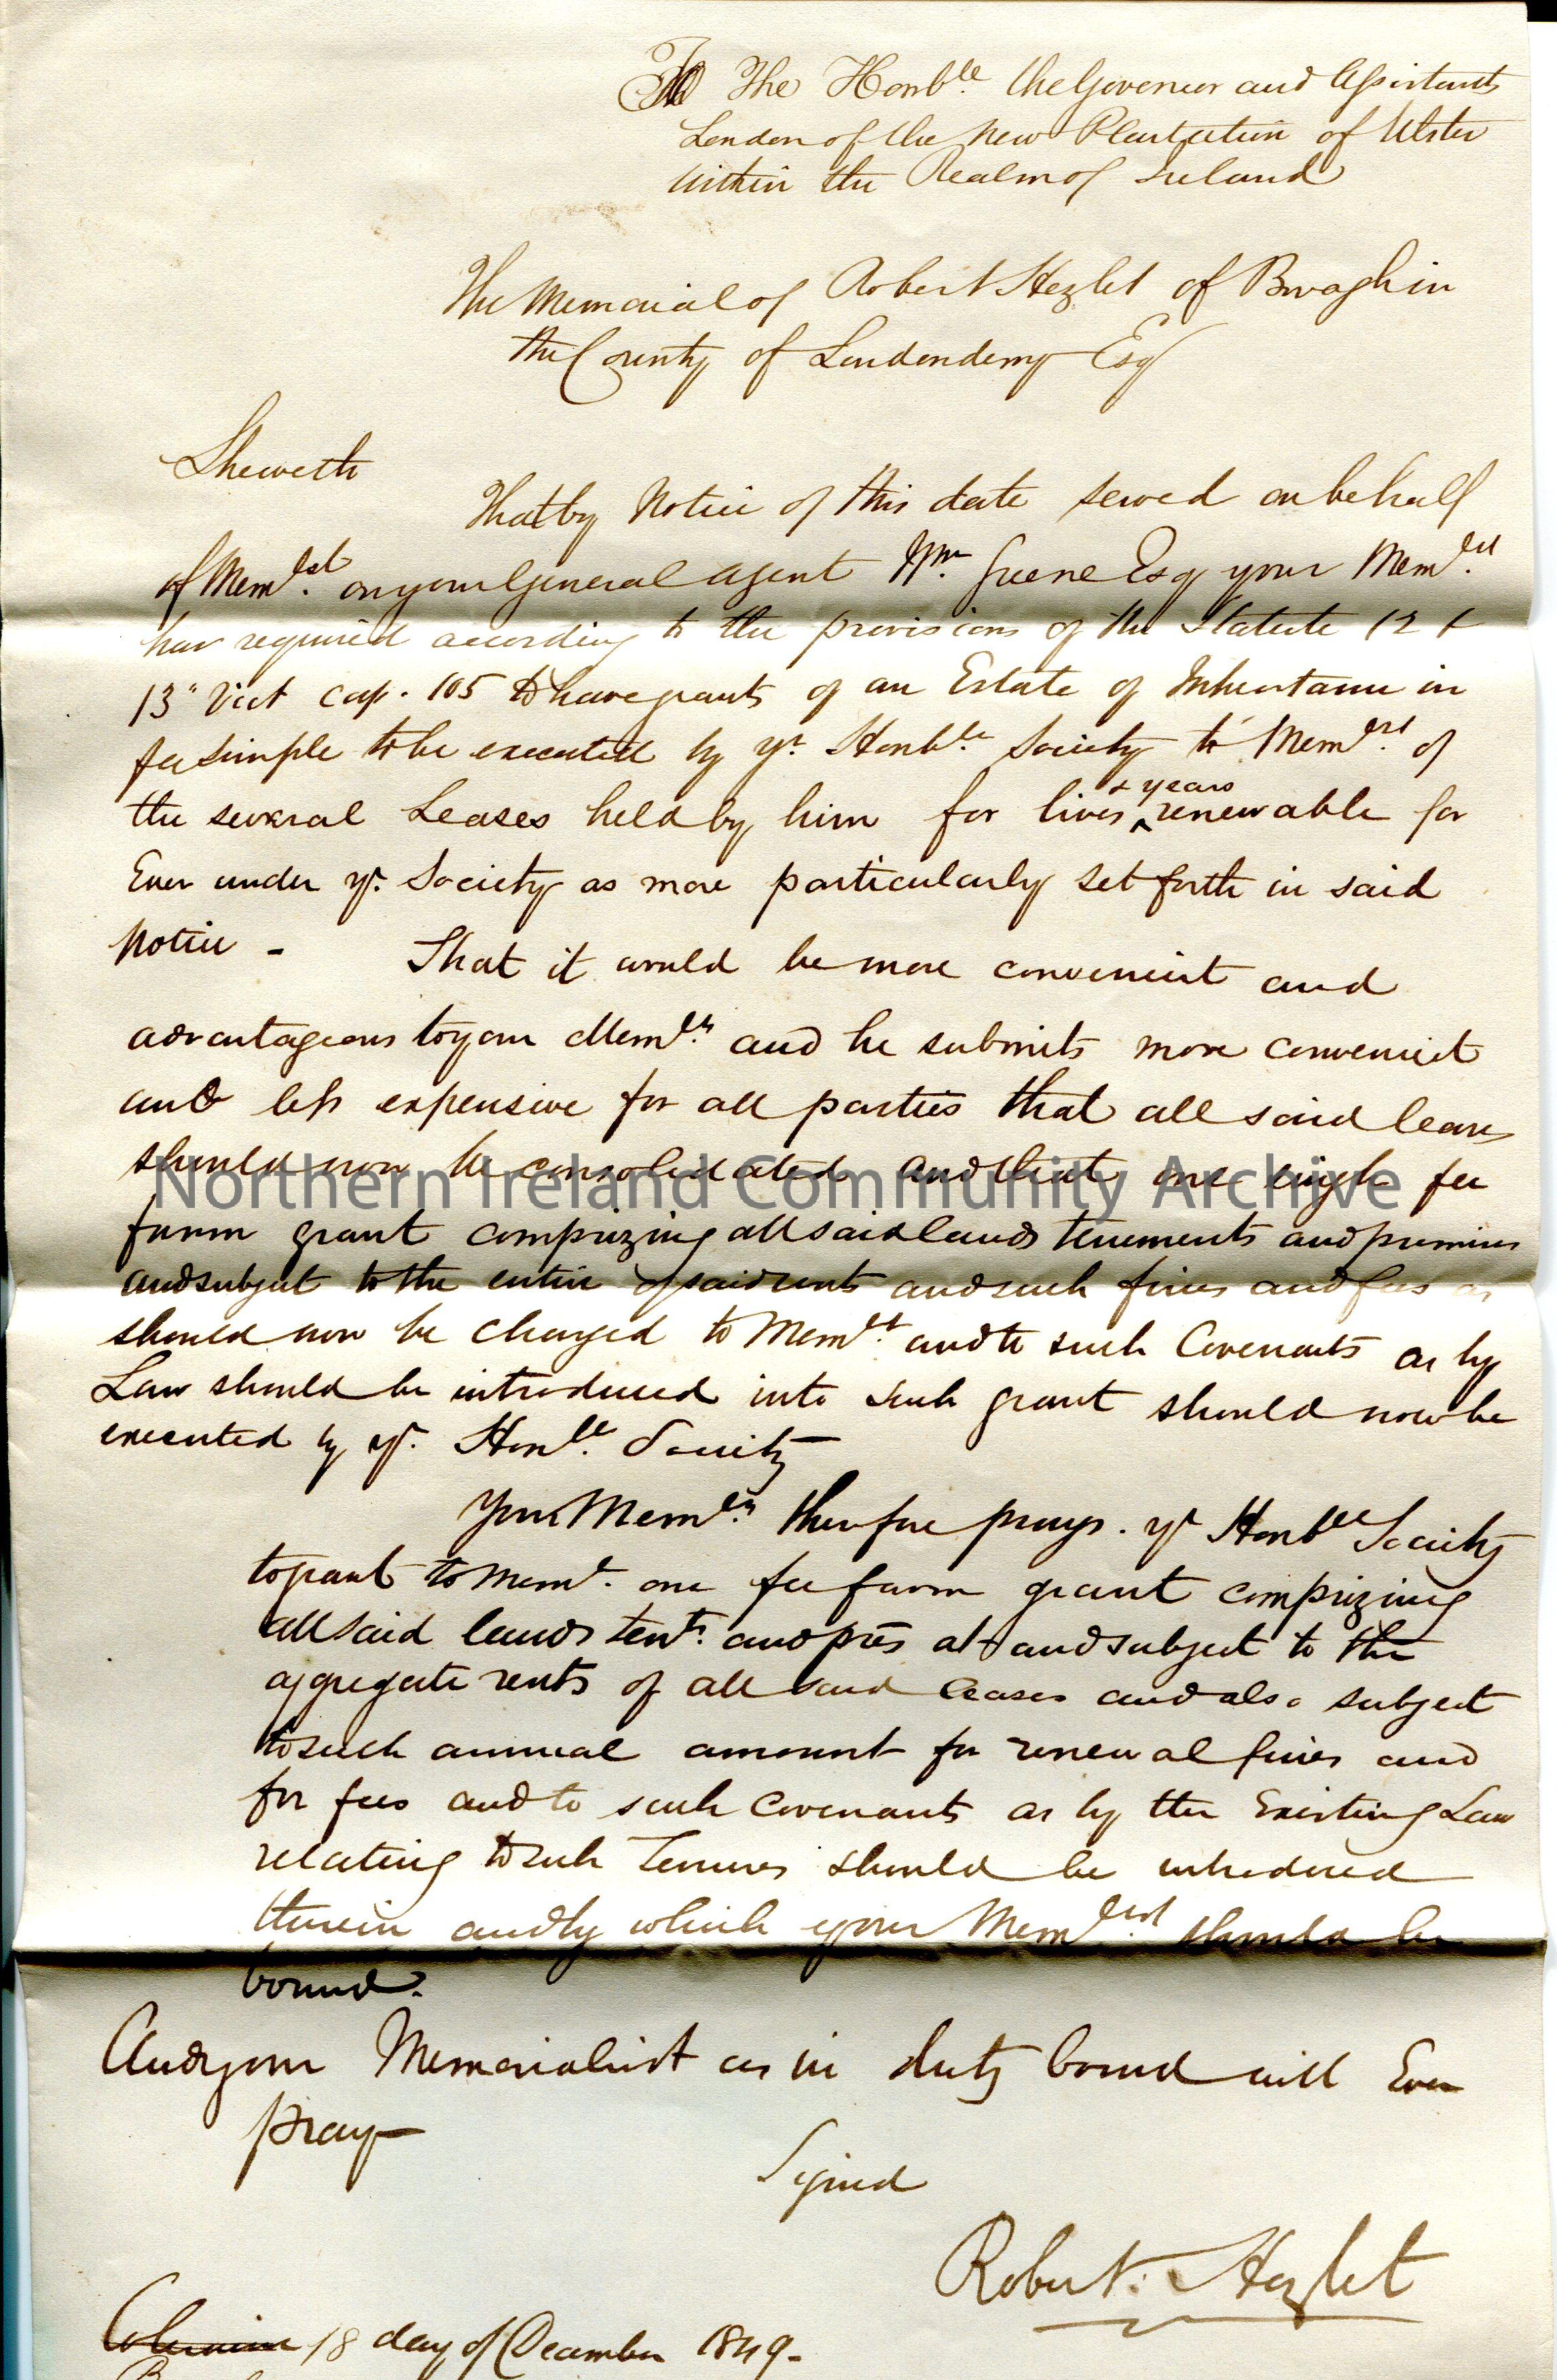 To The Honble. the Governor and Assistants
London of the New Plantation of Ulster
within the Realm of Ireland
The Memorial of Robert Hezlet of Bovagh in
the County of Londonderry Esq
Sheweth
That by Notice of this date served on behalf
of Memlst. on your General Agent Wm. Greene Esq your Memlst.
has required according to the provisions of the Statute 12 &
13" Vict cap. 105 to have grants of an Estate of Inheritance in
fee simple to be executed by yr. Honble. Society to Memlst. of
the several Leases held by him for lives & years renewable for
Ever under yr. Society as more particularly set forth in said
Notice - That it would be more convenient and
advantageous to your Memlst. and he submits more convenient
and less expensive for all parties that all said leases
should now be consolidated and that one single fee
farm grant comprizing all said lands tenements and premises
and subject to the entire of said rents and such fines and fees as
should now be charged to Memlst. and to such Covenants as by
Law should be introduced into such grant should now be
executed by yr. Honle. Society
Your Memlst. therefore prays. yr Honble Society
to grant to Memt. one fee farm grant comprizing
all said lands tents. and pres at and subject to the
aggregate rents of all said leases and also subject
to such annual amount for renewal fines and
for fees and to such Covenants as by the Existing Law
relating to such Tenures should be introduced
therein and by which your Memlst. should be
bound.
And your Memorialist as in duty bound will Ever
pray
Signed
Robert. Hezlet
Coleraine 18 day of December 1849.
Northern Ireland Community Archive